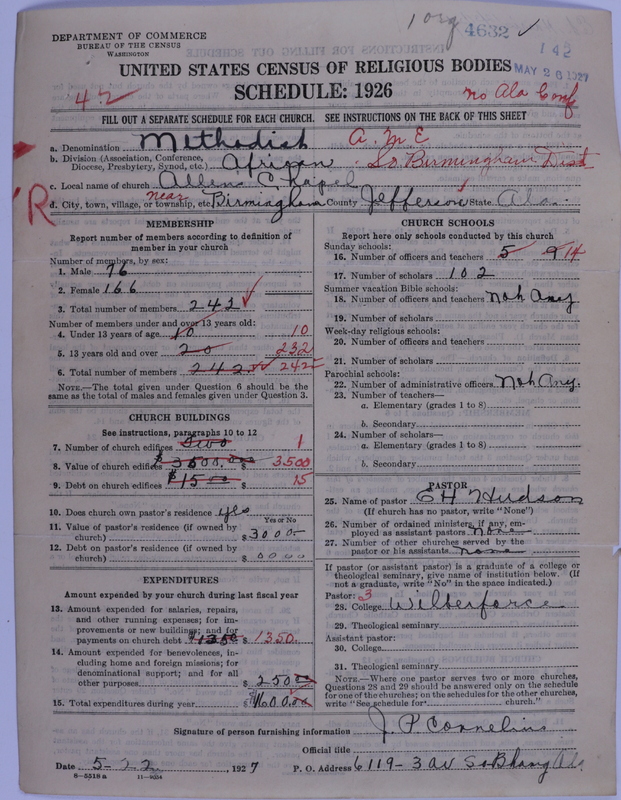 1 org 4632 ✓
142
DEPARTMENT OF COMMERCE
BUREAU OF THE CENSUS
WASHINGTON
MAY 26 1927
UNITED STATES CENSUS OF RELIGIOUS BODIES
SCHEDULE: 1926
42
No Ala Conf
FILL OUT A SEPARATE SCHEDULE FOR EACH CHURCH. SEE INSTRUCTIONS ON THE BACK OF THIS SHEET
a. Denomination Methodist A. M E
b. Division (Association, Conference, Diocese, Presbytery, Synod, etc.) African So Birmingham Dist
c. Local name of church Allens Chapel
R
d. City, town, village, or township, etc. near Birmingham County Jefferson State Ala.
MEMBERSHIP
Report number of members according to definition of
member in your church
Number of members, by sex:
1. Male 76
2. Female 166
3. Total number of members 242 ✓
Number of members under and over 13 years old:
4. Under 13 years of age 10 10
5. 13 years old and over 20 232
6. Total number of members 242 ✓✓ 242
NOTE.—The total given under Question 6 should be
same as the total of males and females given under Question 3.
CHURCH BUILDINGS
See instructions, paragraphs 10 to 12
7. Number of church edifices two 1
8. Value of church edifices $3500.00 $ 3500
9. Debt on church edifices $15 00 $ 15
10. Does church own pastor's residence yes
Yes or No
11. Value of pastor's residence (if owned by
church) $ 3000
12. Debt on pastor's residence (if owned by
church) $ 0000
EXPENDITURES
Amount expended by your church during last fiscal year
13. Amount expended for salaries, repairs,
and other running expenses; for im-
provements or new buildings; and for
payments on church debt $1350 $ 1350.
14. Amount expended for benevolences, in-
cluding home and foreign missions; for
denominational support; and for all
other purposes $ 250 00
15. Total expenditures during year $ 1600.00
CHURCH SCHOOLS
Report here only schools conducted by this church
Sunday schools:
16. Number of officers and teachers 5 9 14
17. Number of scholars 102
Summer vacation Bible schools:
18. Number of officers and teachers Noh Aney
19. Number of scholars
Week-day religious schools:
20. Number of officers and teachers
21. Number of scholars
Parochial schools:
22. Number of administrative officers Noh Aney.
23. Number of teachers—
a. Elementary (grades 1 to 8)
b. Secondary
24. Number of scholars—
a. Elementary (grades 1 to 8)
b. Secondary
PASTOR
25. Name of pastor C H Hudson
(If church has no pastor, write "None")
26. Number of ordained ministers, if any, em-
ployed as assistant pastors none
27. Number of other churches served by the
pastor or his assistants none
If pastor (or assistant pastor) is a graduate of a college or
theological seminary, give name of institution below. (If
not a graduate, write "No" in the space indicated.)
Pastor: 3
28. College Wilberforce
29. Theological seminary
Assistant pastor:
30. College
31. Theological seminary
NOTE.—Where one pastor serves two or more churches,
Questions 28 and 29 should be answered only on the schedule
for one of the churches; on the schedules for the other churches,
write "See schedule for church."
Signature of person furnishing information J. P Cornelius
Official title
Date 5-22, 1927 P. O. Address 6119-3 av So Bhang Ala
6-5518 a 11-9034